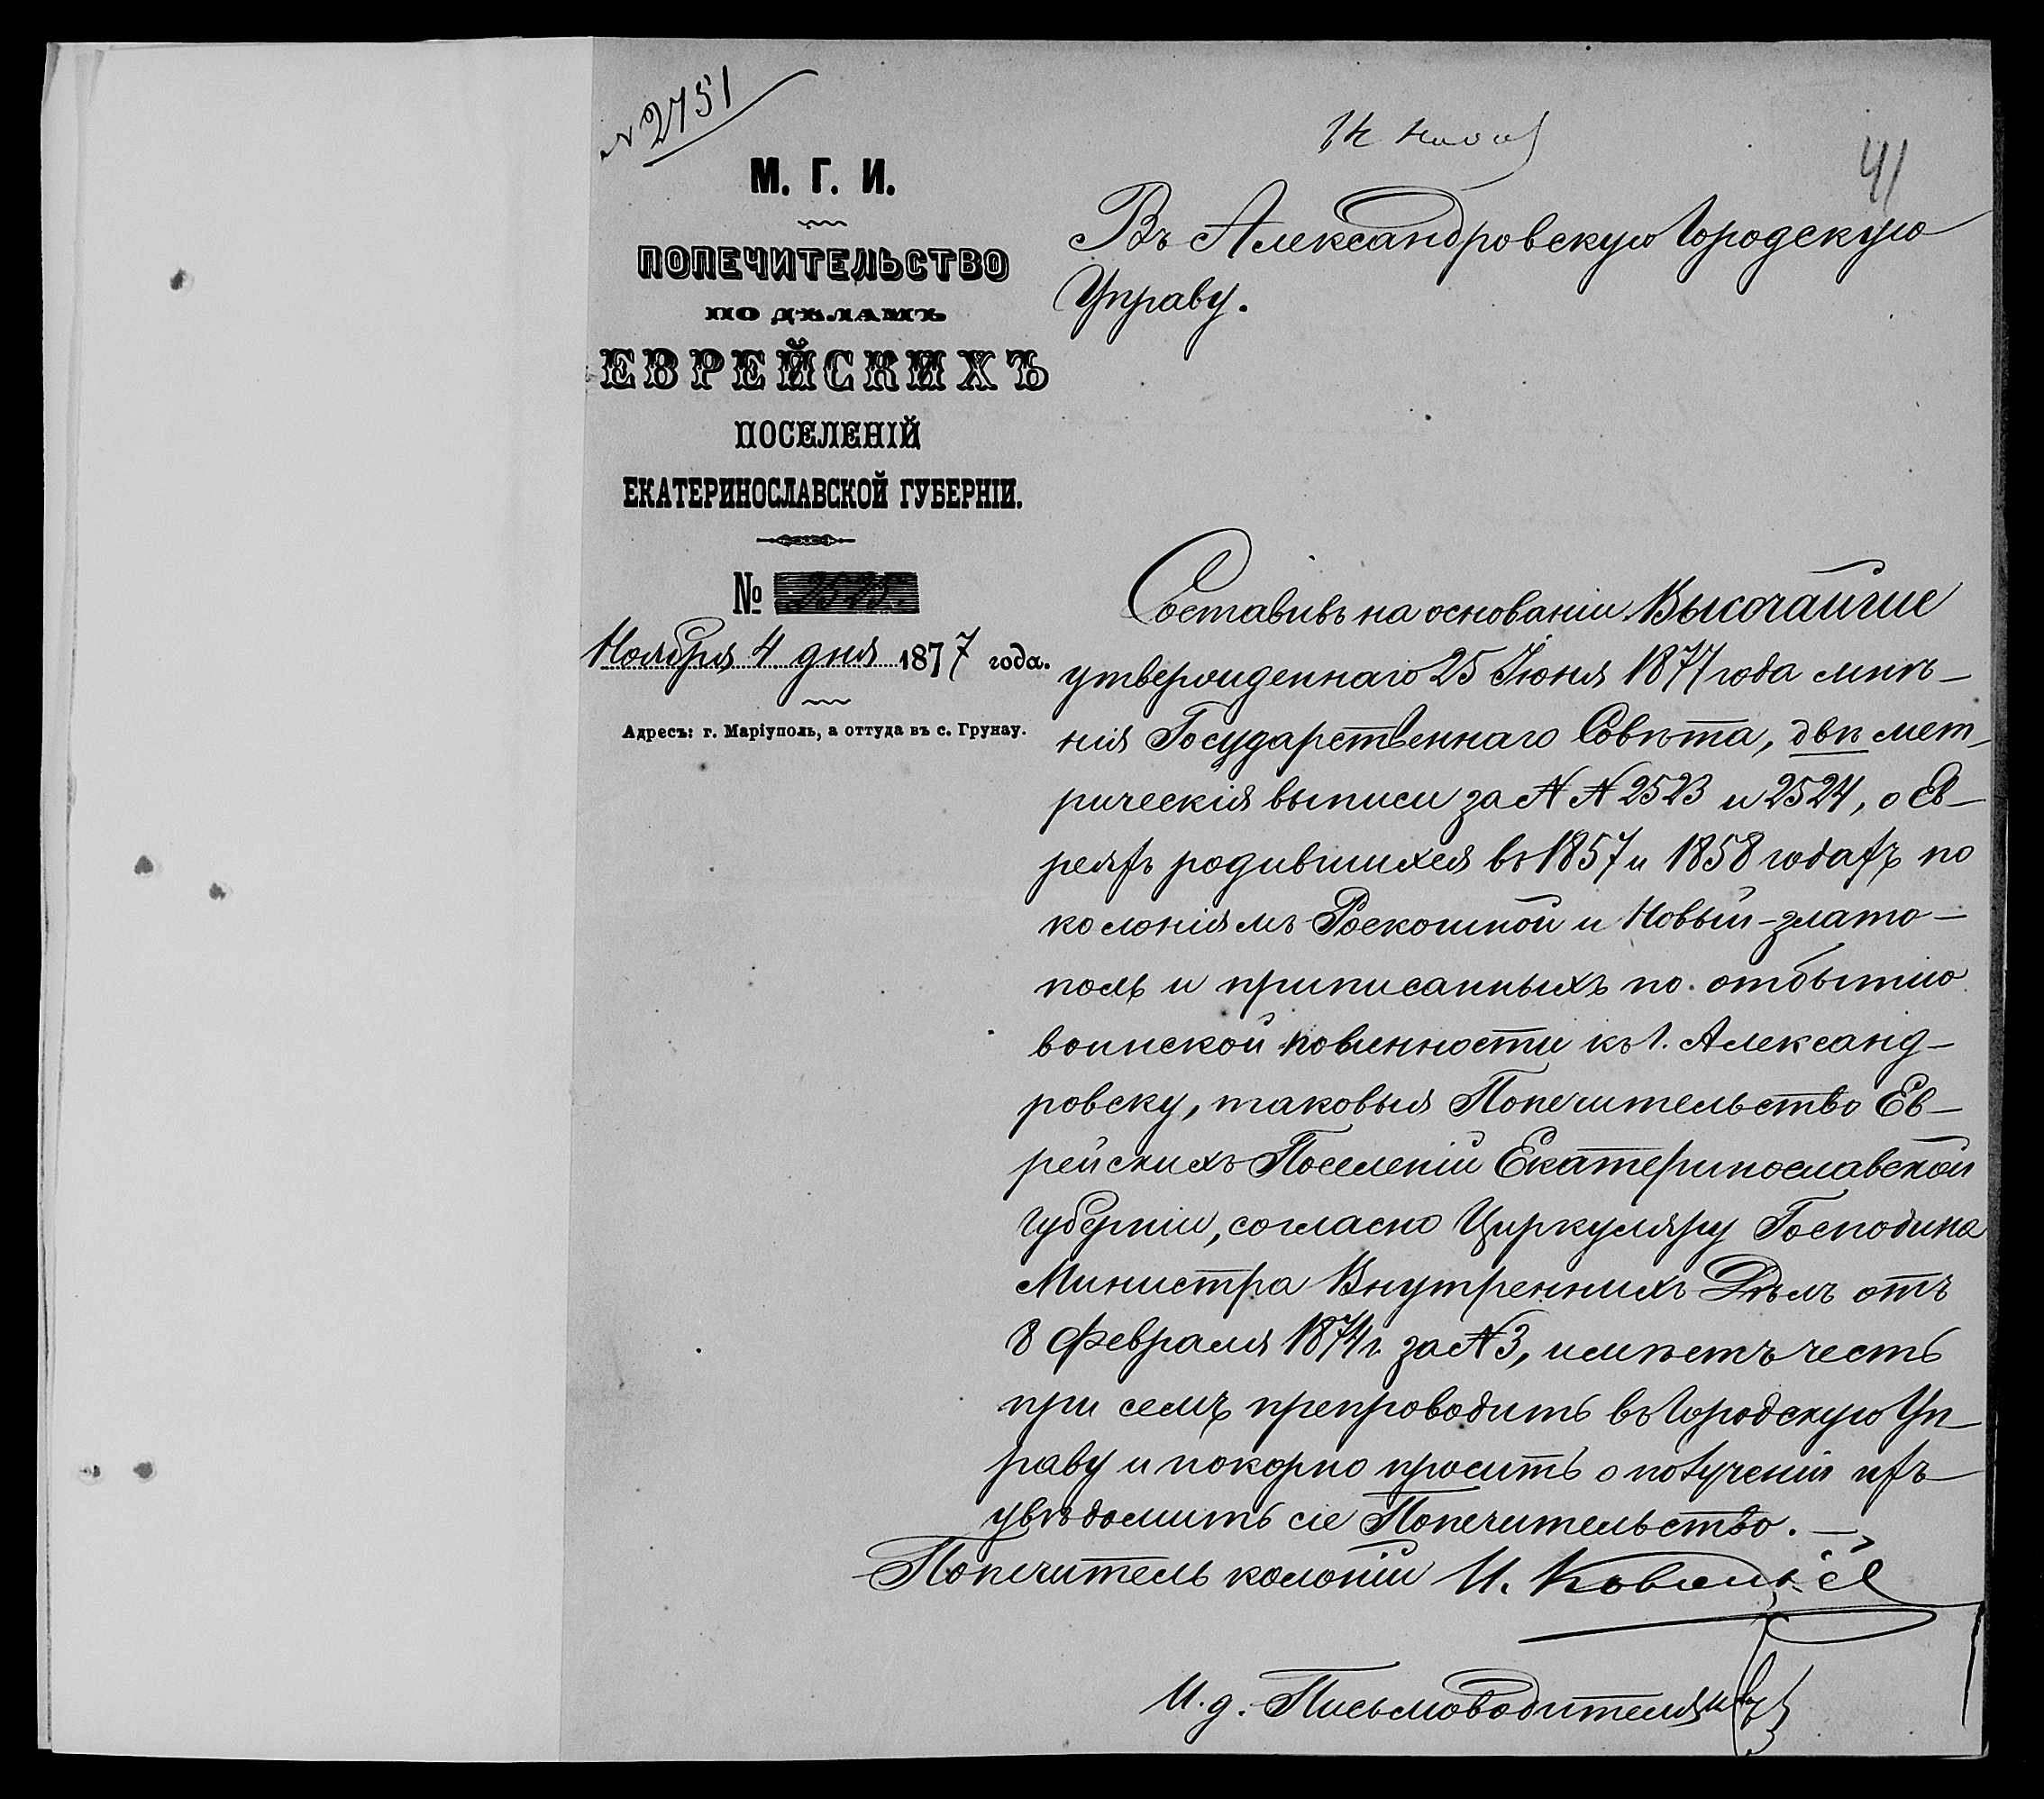 № 2751
14 Нояб
41
М. Г. И.
ПОПЕЧИТЕЛЬСТВО
ПО ДѢЛАМЪ
ЕВРЕЙСКИХЪ
ПОСЕЛЕНІЙ
ЕКАТЕРИНОСЛАВСКОЙ ГУБЕРНІИ.
№ 2525.
Ноября 4 дня 1877 года.
Адресъ: г. Маріуполь, а оттуда въ с. Грунау.
Въ Александровскую Городскую
Управу.
Составивъ на основаніи Высочайше
утвержденнаго 25 Іюня 1877 года мнѣ-
нія Государственнаго Совѣта, двѣ мет-
рическія выписи за №№ 2523 и 2524, о Ев-
реяхъ родившихся въ 1857 и 1858 годахъ по
колоніямъ Роскошной и Новый-злато-
поль и приписанныхъ по отбытію
воинской повинности къ г. Александ-
ровску, таковыя Попечительство Ев-
рейскихъ Поселеній Екатеринославской
Губерніи, согласно Циркуляру Господина
Министра Внутреннихъ Дѣлъ отъ
8 Февраля 1874 г. за № 3, имѣетъ честь
при семъ препроводить въ Городскую Уп-
раву и покорно просить о полученіи ихъ
увѣдомить сіе Попечительство. —
Попечитель колоній И.
И. д. Письмоводителя